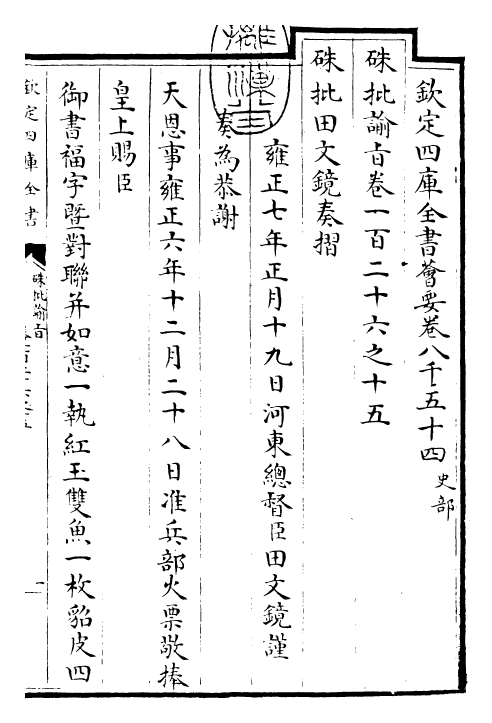 欽定四庫全書薈要卷八千五十四 史部
硃批諭旨卷一百二十六之十五
硃批田文鏡奏摺
雍正七年正月十九日河東總督臣田文鏡謹
奏為恭謝
天恩事雍正六年十二月二十八日准兵部火票敬捧
皇上賜臣
御書福字暨對聯并如意一執紅玉雙魚一枚貂皮四
欽定四庫全書
硃批諭旨